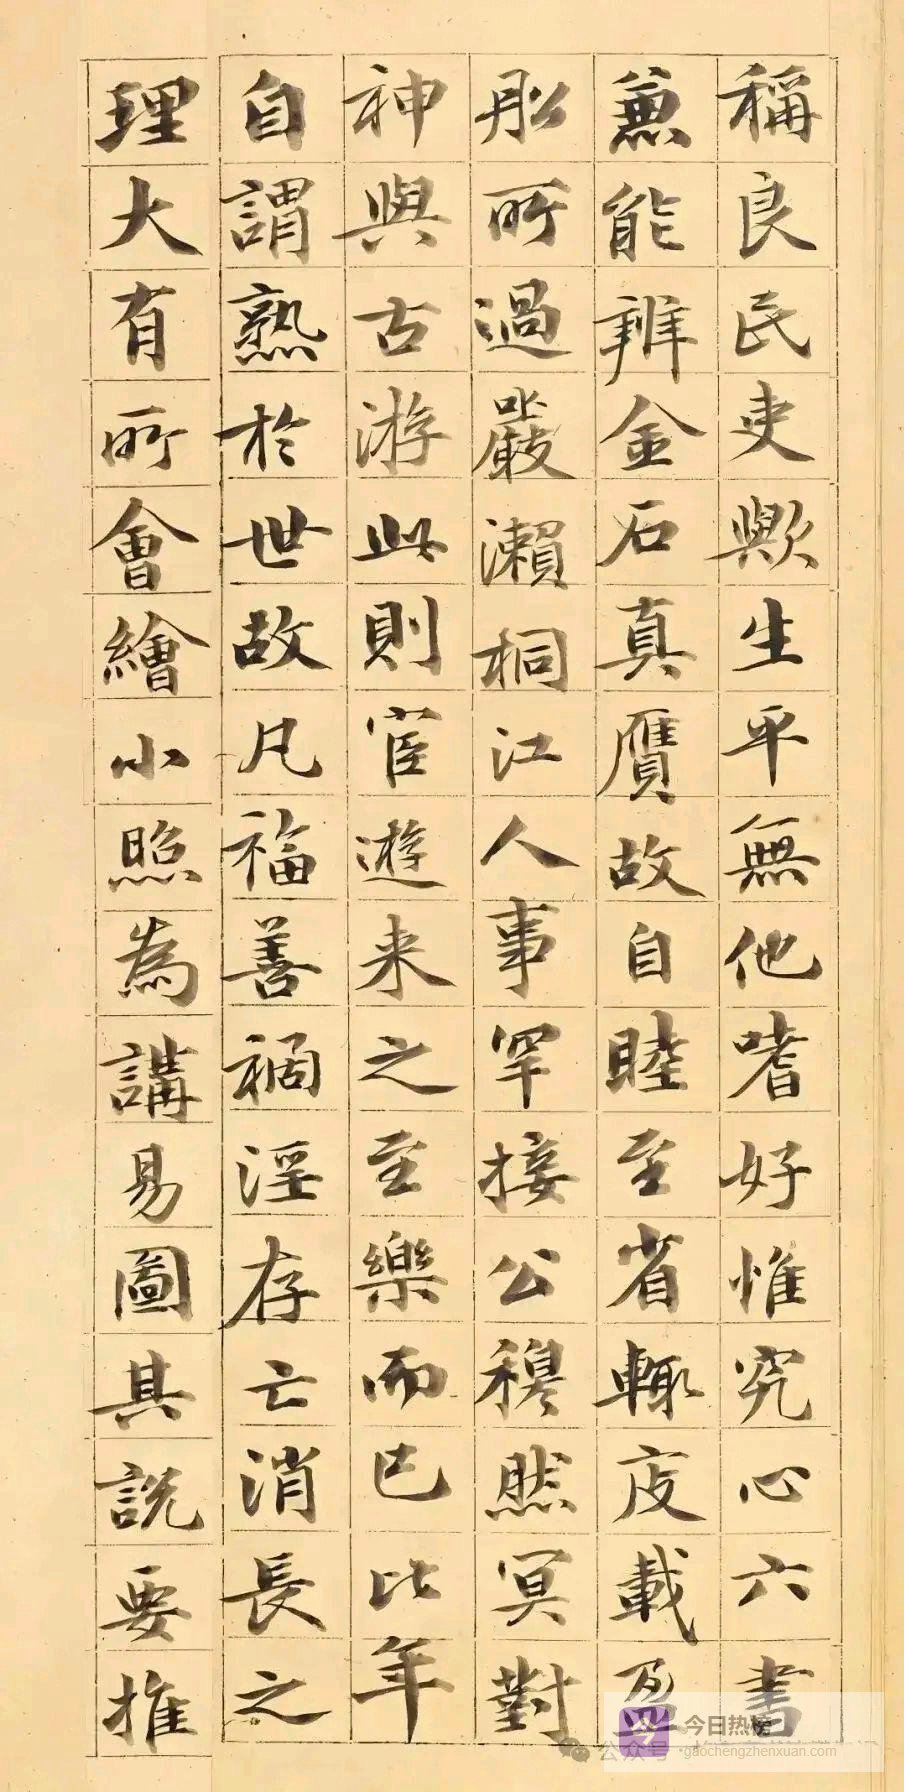 稱良民吏歟生平無他嗜好惟究心六書
兼能辨金石真贋故自睦至省輒庋載盈
舩所過嚴瀨桐江人事罕接公穆然冥對
神與古游此則宦遊来之至樂而已比年
自謂熟於世故凡福善禍淫存亡消長之
理大有所會繪小照為講易圖其説要推
今日热榜
公众号
gaochengzhenxuan.com